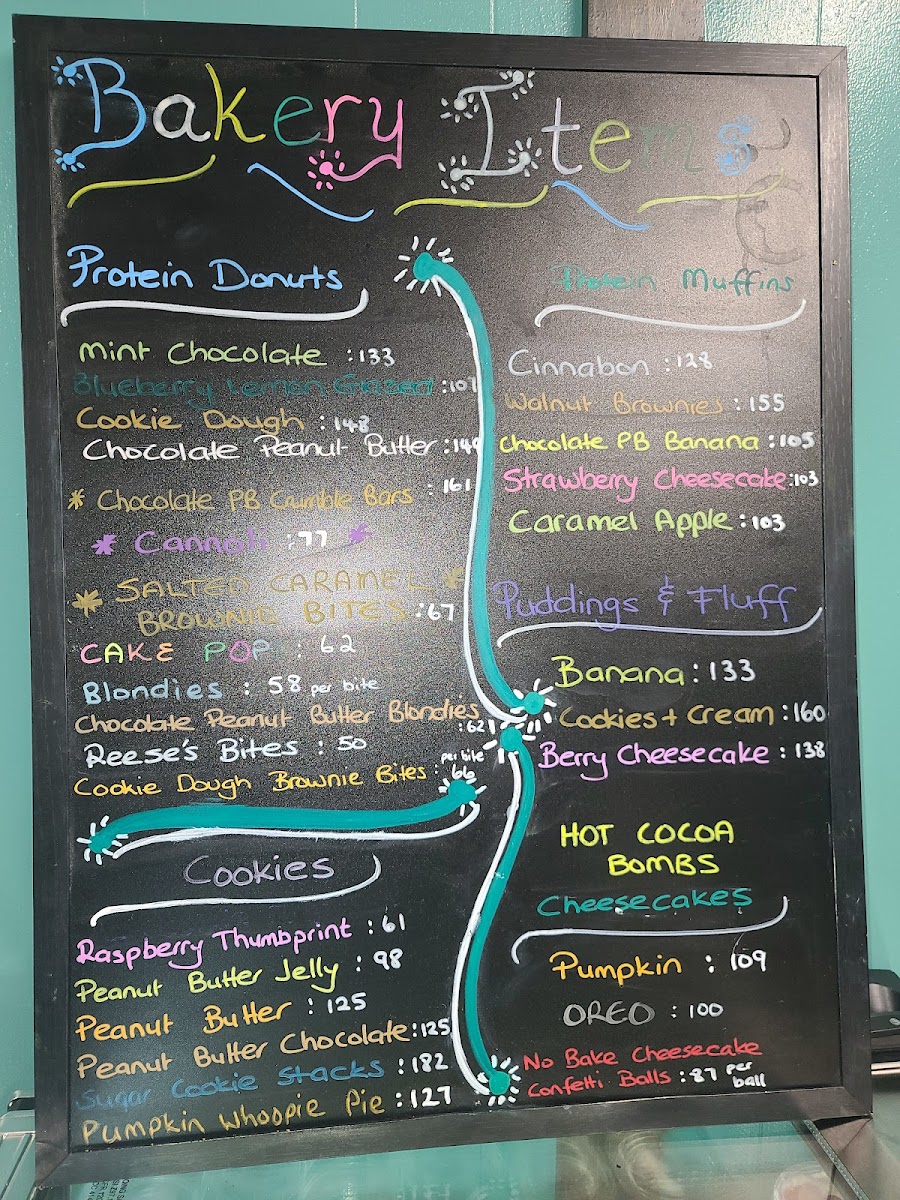 Bakery Items
Protein Donuts
Mint Chocolate : 133
Blueberry Lemon Glazed : 107
Cookie Dough : 148
Chocolate Peanut Butter : 149
* Chocolate PB Crumble Bars : 161
* Cannoli : 77 *
* SALTED CARAMEL *
BROWNIE BITES : 67
CAKE POP : 62
Blondies : 58 per bite
Chocolate Peanut Butter Blondies
: 62
Reese's Bites : 50
per bite
Cookie Dough Brownie Bites : 66
Cookies
Raspberry Thumbprint : 61
Peanut Butter Jelly : 98
Peanut Butter : 125
Peanut Butter Chocolate : 125
Sugar Cookie Stacks : 182
Pumpkin Whoopie Pie : 127
Protein Muffins
Cinnabon : 128
Walnut Brownies : 155
Chocolate PB Banana : 105
Strawberry Cheesecake : 103
Caramel Apple : 103
Puddings & Fluff
Banana : 133
Cookies + Cream : 160
Berry Cheesecake : 138
HOT COCOA
BOMBS
Cheesecakes
Pumpkin : 109
OREO : 100
No Bake Cheesecake
Confetti Balls : 87 per
ball